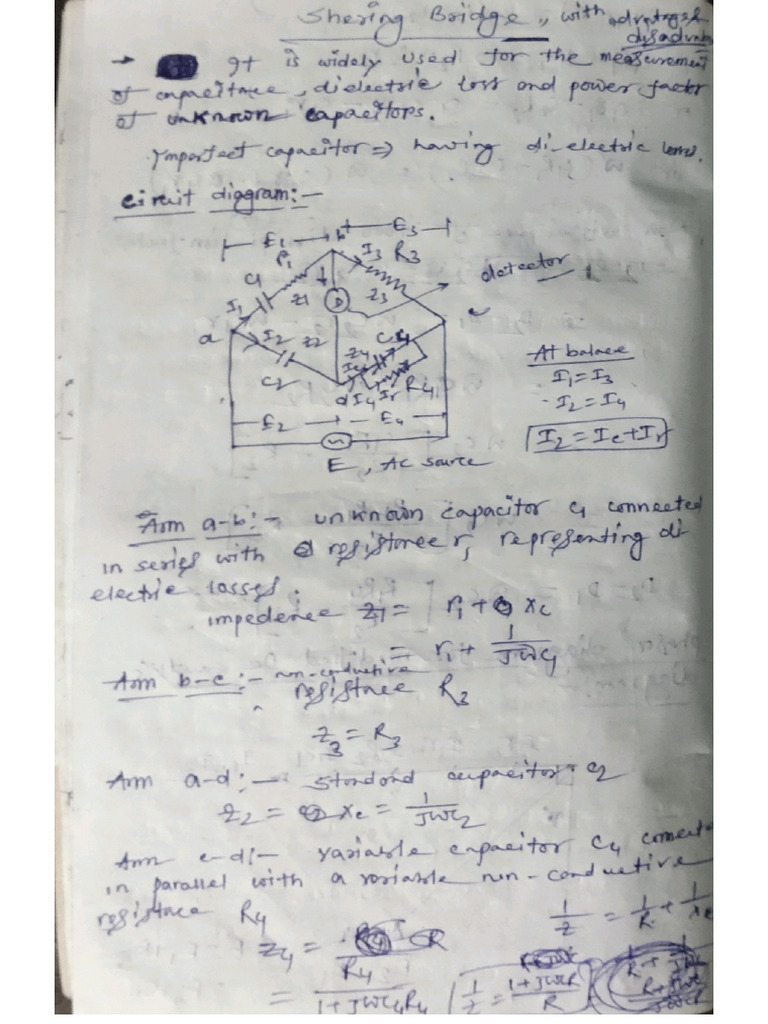 Shering Bridge, with advantages &
disadvan
→ It is widely used for the measurement
of capacitance, dielectric loss and power factor
of unknown capacitors.
Imperfect capacitor ⇒ having di-electric loss.
Circuit diagram:-
E1 b E3
C1 r1 I3 R3
detector
I1 Z1 D Z3
a I2 Z2 C4 c
C2 Z4 Ic
d I4 Ir R4
E2 E4
E, AC source
At balance
I1 = I3
I2 = I4
I2 = Ic + Ir
Arm a-b:- unknown capacitor C1 connected
in series with resistance r1, representing di
electric losses.
impedence Z1 = r1 + Xc
= r1 + 1/JWC1
Arm b-c:- non-conductive
resistace R3
Z3 = R3
Arm a-d:- standard capacitor C2
Z2 = Xc = 1/JWC2
Arm c-d:- variable capacitor C4 connect
in parallel with a variable non-conductive
resistace R4
1/Z = 1/R + 1/Xc
Z4 = R4
= R4/1+JWC4R4
1/Z = 1+JWCR/R